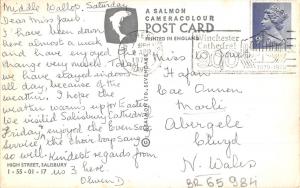 Middle Wallop, Saturday
Dear Miss Jaub.
I have been down
here almost a week
and have enjoyed the
change very much. Today
we have stayed indoors
all day, because of the
weather. I hope the
weather warms up Easter.
We visited Salisbury Cathedral
Friday, enjoyed the Evensong
Service, the choir boys sang
so well. Kindest regards from
no 3 here. Olwen D
HIGH STREET, SALISBURY
1-55-01-17
A SALMON
CAMERACOLOUR
POST CARD
PRINTED IN ENGLAND
© J SALMON LTD SEVENOAKS
Winchester
Cathedral
1079-1979
Miss W. J
Hafan
Cae Onnen
Abergele
Clwyd
N. Wales
BR 65 984